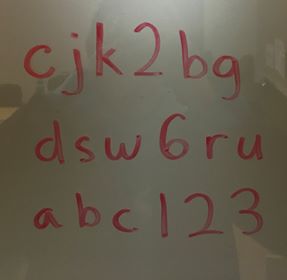 cjk2bg
dsw6ru
abc123